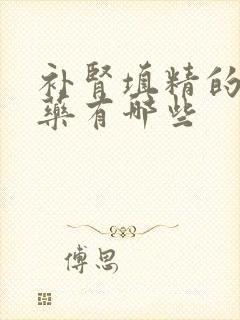 补腎填精的
藥有哪些
傅思